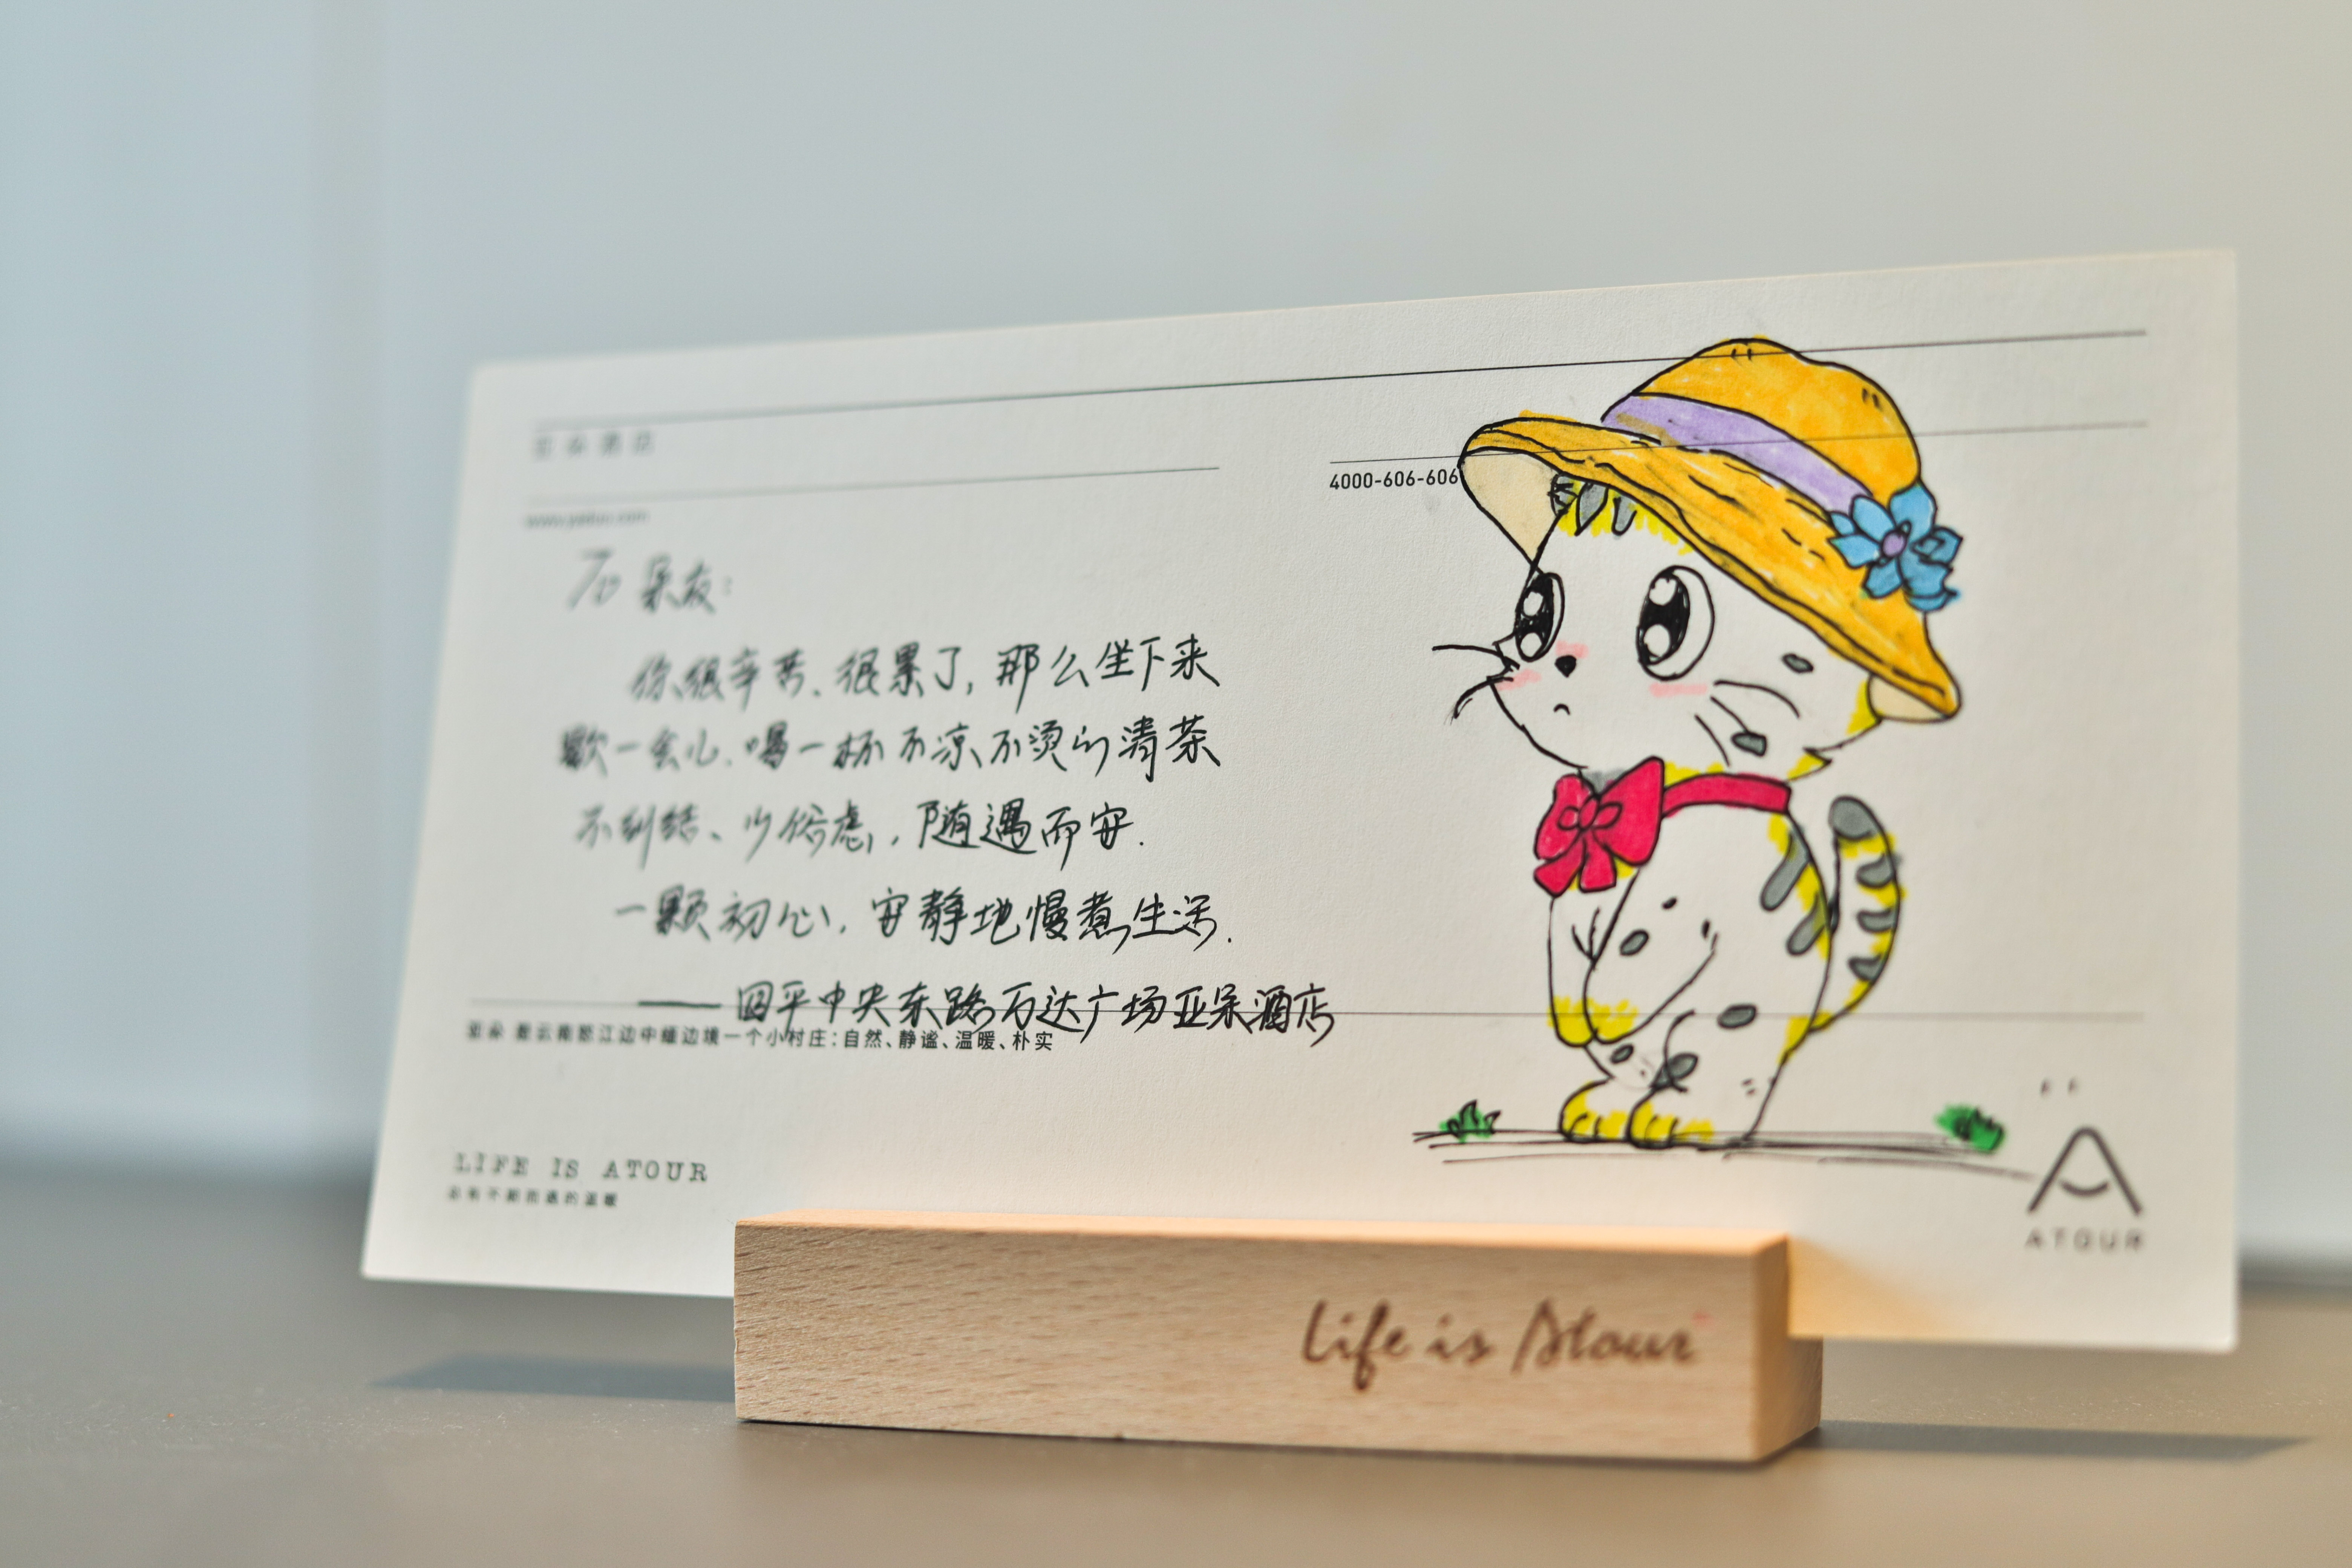 亚朵酒店
4000-606-606
www.yaduo.com
To 朵友：
你很辛苦、很累了，那么坐下来
歇一会儿.喝一杯不凉不烫的清茶
不纠结、少俗虑，随遇而安.
一颗初心，安静地慢煮生活.
——四平中央东路万达广场亚朵酒店
亚朵 是云南怒江边中缅边境一个小村庄：自然、静谧、温暖、朴实
LIFE IS ATOUR
总有不期而遇的温暖
ATOUR
Life is Atour